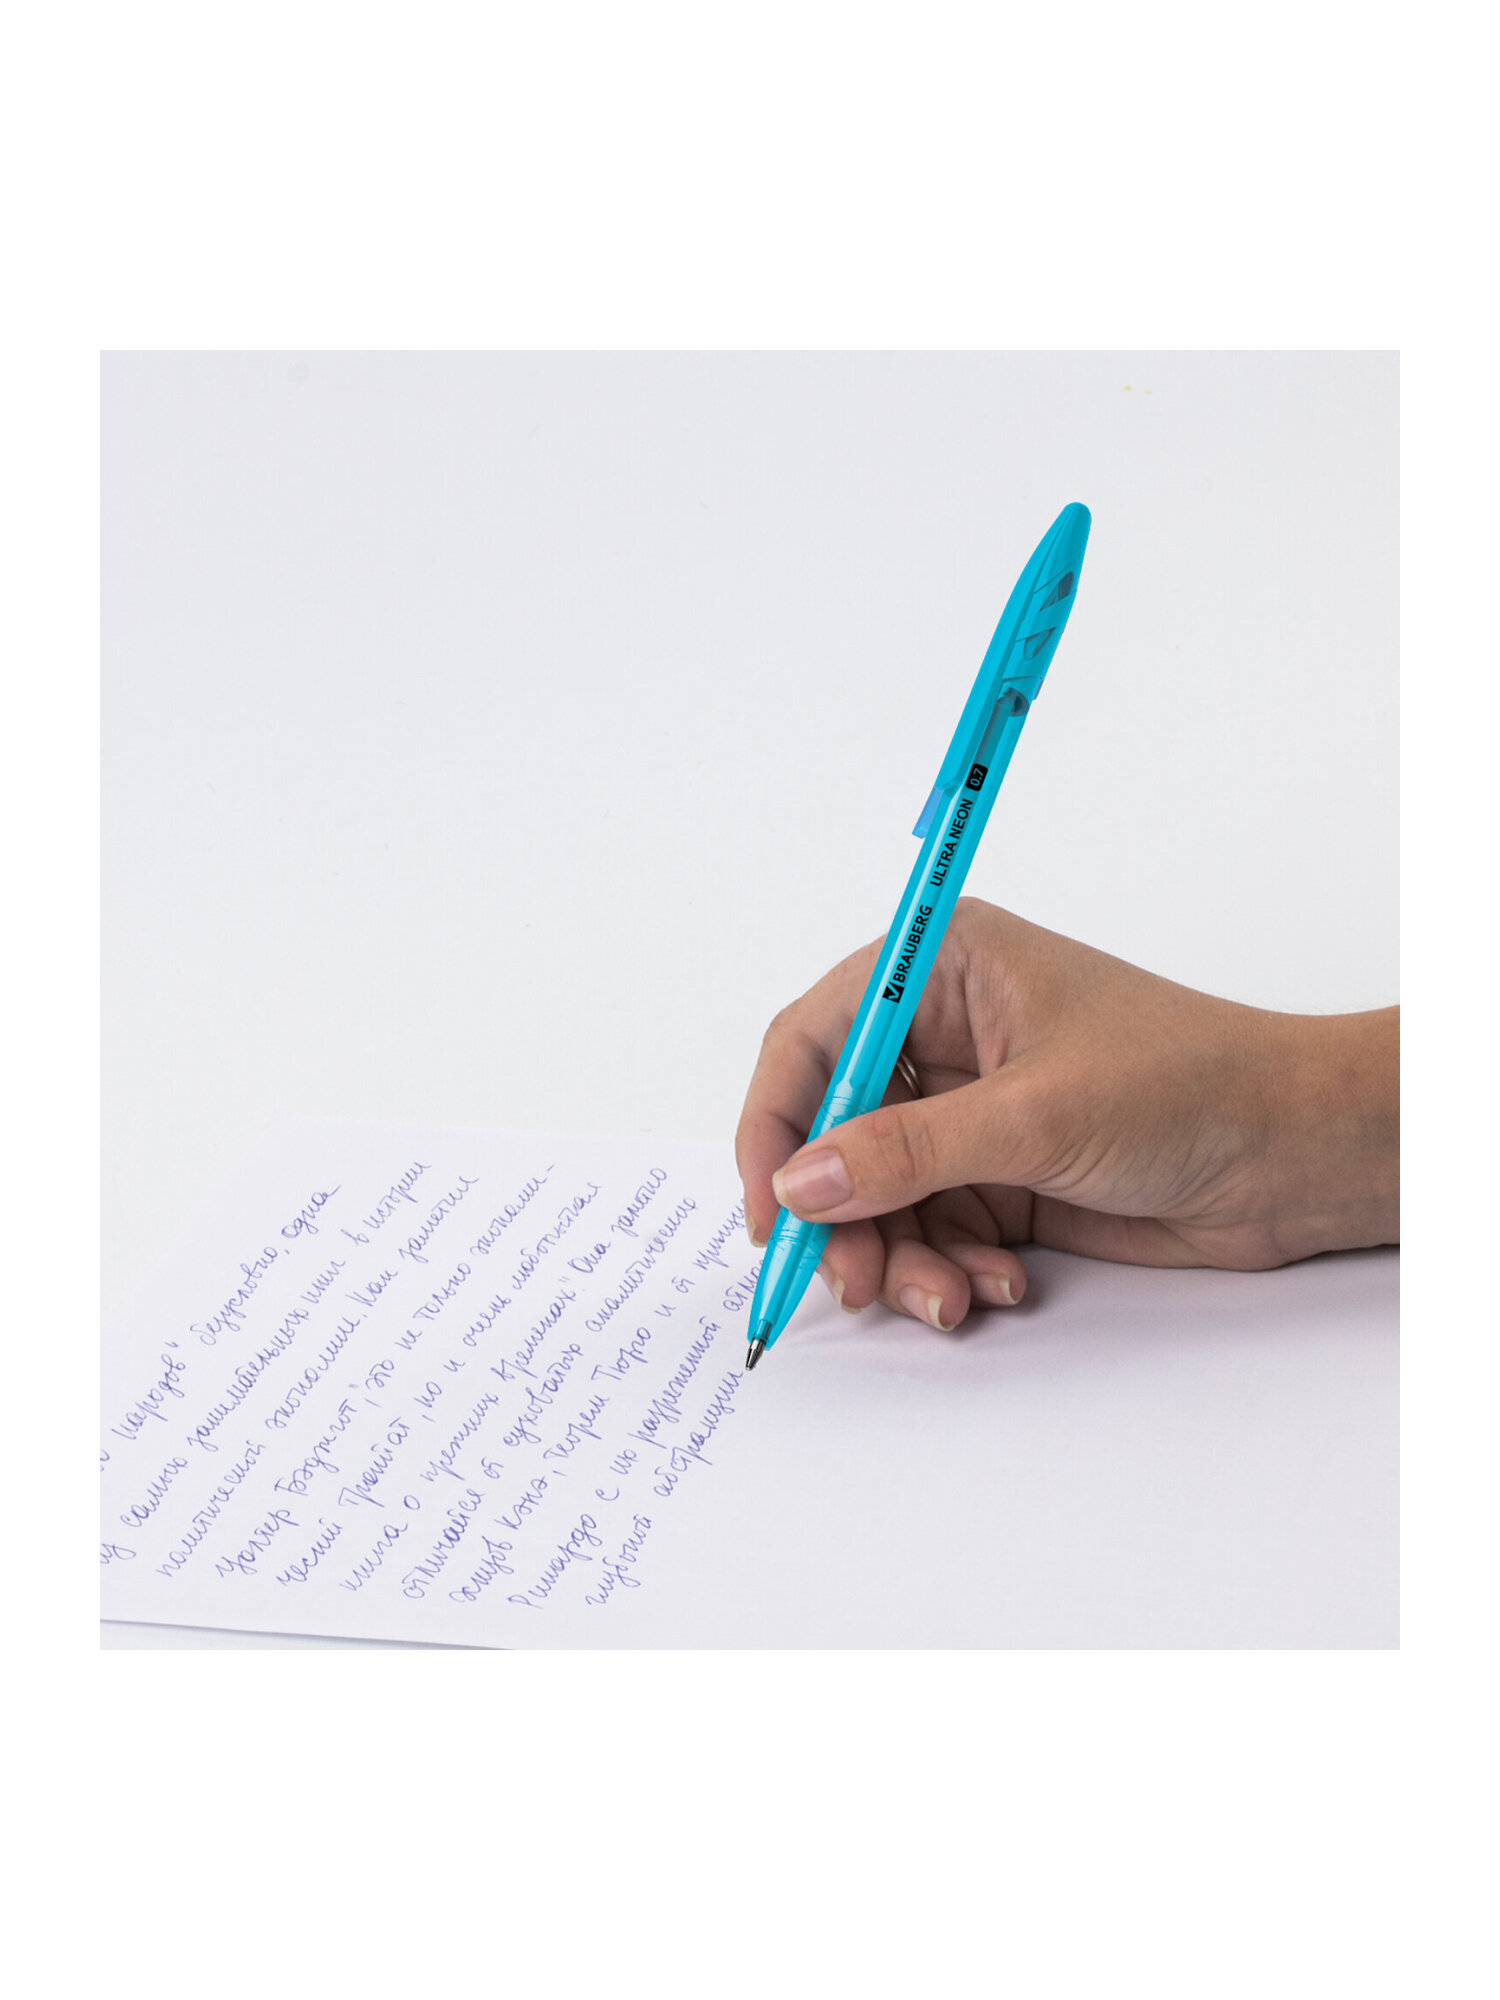 народов" безусловно, одна
самых занимательных книг в истории
политической экономии. Как заметил
Уолтер Бэджгот, "это не только экономи-
ческий трактат, но и очень любопытная
книга о прежних временах." Она заметно
отличается от суховатых аналитических
Кэнэ, теорем Тюрго и от принцип
Рикардо с их разреженной атмо
глубокой абстракции
BRAUBERG ULTRA NEON 0.7